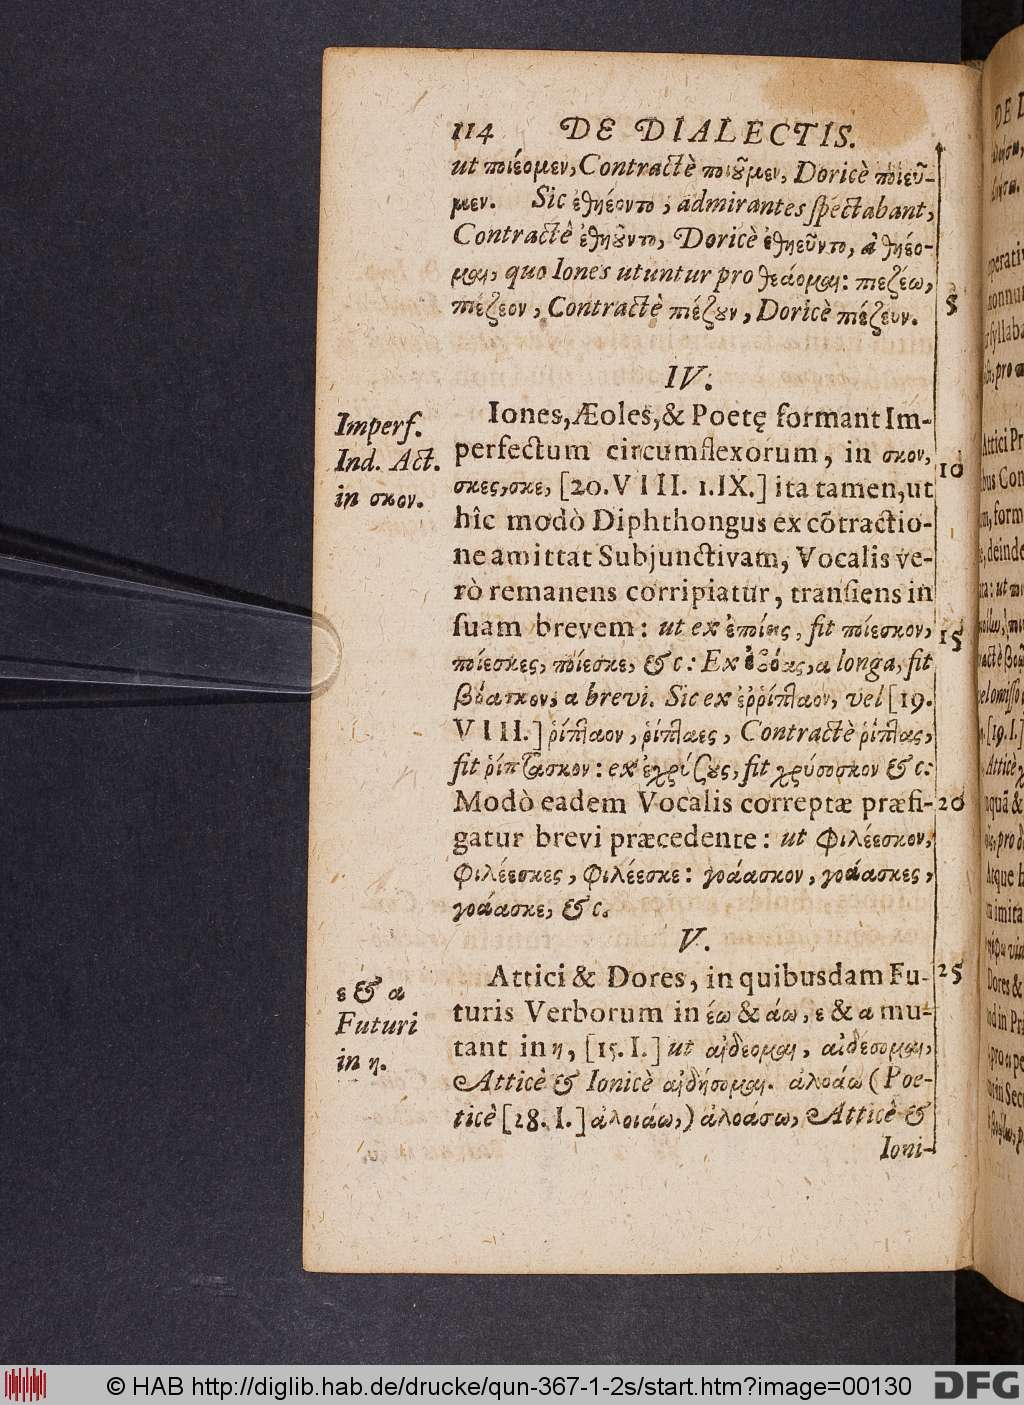 114 DE DIALECTIS.
ut ποιέομεν, Contractè ποιοῦμεν, Doricè ποιεῦ-
μεν. Sic ἐθηέοντο, admirantes spectabant,
Contractè ἐθηοῦντο, Doricè ἐθηεῦντο, à θηέο-
μαι, quo Iones utuntur pro θεάομαι: πιεζέω,
πιέζεον, Contractè πιέζουν, Doricè πιέζευν.
5
IV.
Imperf.
Ind. Act.
in σκον.
Iones, Æoles, & Poetę formant Im-
perfectum circumflexorum, in σκον,
10
σκες, σκε, [20. VIII. 1. IX.] ita tamen, ut
hîc modò Diphthongus ex cõtractio-
ne amittat Subjunctivam, Vocalis ve-
rò remanens corripiatur, transiens in
suam brevem: ut ex ἐποίεις, fit ποίεσκον,
15
ποίεσκες, ποίεσκε, & c: Ex ἐβόας, α longa, fit
βόασκον, α brevi. Sic ex ἐῤῥίπταον, vel [19.
VIII.] ῥίπταον, ῥίπταες, Contractè ῥίπτας,
fit ῥίπτασκον: ex ἐχρύσους, fit χρύσοσκον & c:
Modò eadem Vocalis correptæ præfi-
20
gatur brevi præcedente: ut φιλέεσκον,
φιλέεσκες, φιλέεσκε: γοάασκον, γοάασκες,
γοάασκε, & c.
V.
ε & α
Futuri
in η.
Attici & Dores, in quibusdam Fu-
25
turis Verborum in έω & άω, ε & α mu-
tant in η, [15. I.] ut αἰδέομαι, αἰδέσομαι,
Atticè & Ionicè αἰδήσομαι. ἀλοάω (Poe-
ticè [28. I.] ἀλοιάω,) ἀλοάσω, Atticè &
Ioni-
© HAB http://diglib.hab.de/drucke/qun-367-1-2s/start.htm?image=00130
DFG